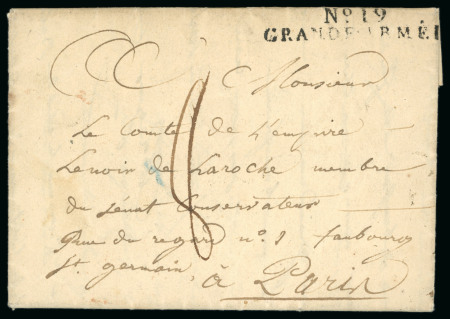 No. 19
GRANDE ARMÉE
Monsieur
Le Comte de L'empire
Lenoir de Laroche membre
du Sénat Conservateur
Rue du regard n°. 1 faubourg
St. germain, à Paris
8